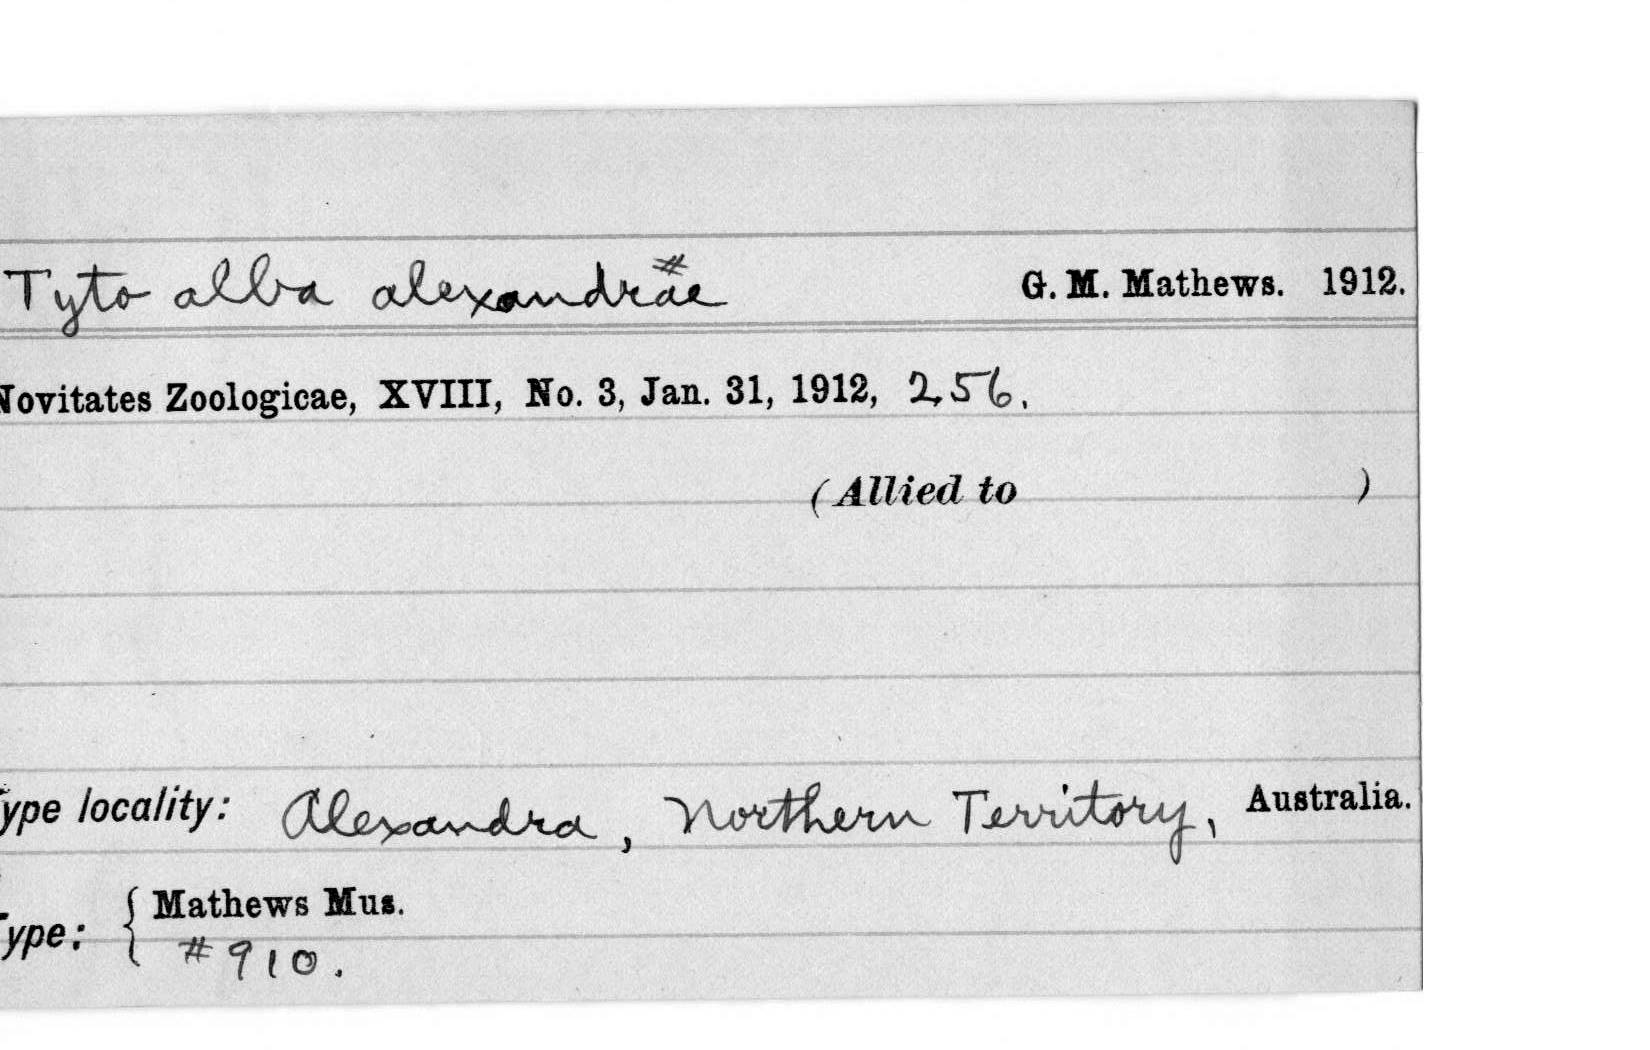 Tyto alba alexandrae # G. M. Mathews. 1912.
Novitates Zoologicae, XVIII, No. 3, Jan. 31, 1912, 256.
(Allied to )
Type locality: Alexandra, Northern Territory, Australia.
Type: { Mathews Mus.
#910.